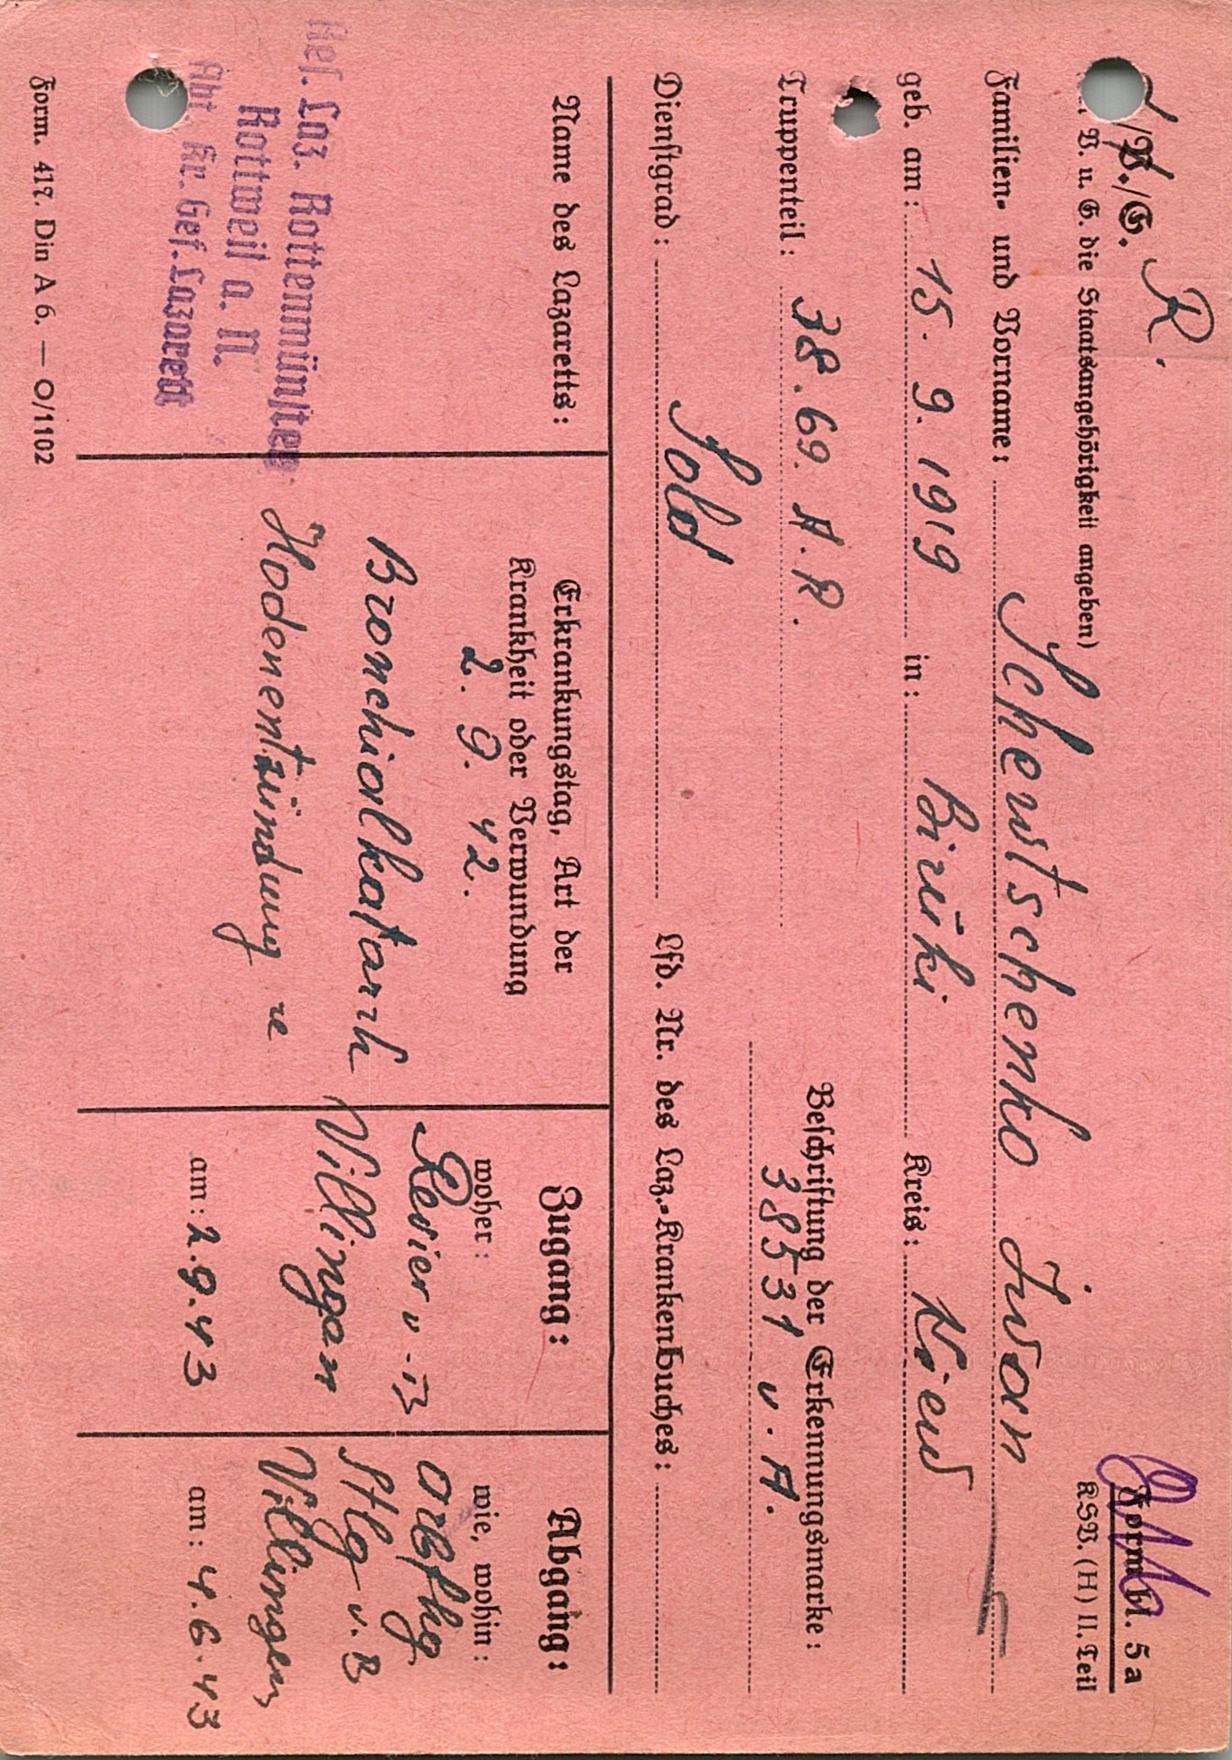 L/V./G. R.
Formbl. 5a
V. u. G. die Staatsangehörigkeit angeben)
KSV. (H) II. Teil
Familien- und Vorname: Schewtschenko Iwan
geb. am: 15. 9. 1919 in: Biruki Kreis: Kiew
Truppenteil: 38.69. A.R.
Beschriftung der Erkennungsmarke:
38531 v. A.
Dienstgrad: Sold Lfd. Nr. des Laz.-Krankenbuches:
Name des Lazaretts:
Res. Laz. Rottenmünster
Rottweil a. N.
Abt. Kr. Gef. Lazarett
Erkrankungstag, Art der
Krankheit oder Verwundung
2. 9. 42.
Bronchialkatarrh
Hodenentzündung re
Zugang:
woher:
Revier v. B
Villingen
am: 2.9.43
Abgang:
wie, wohin:
Stlg v. B
Villingen
am: 4.6.43
Form. 417. Din A 6. — O/1102